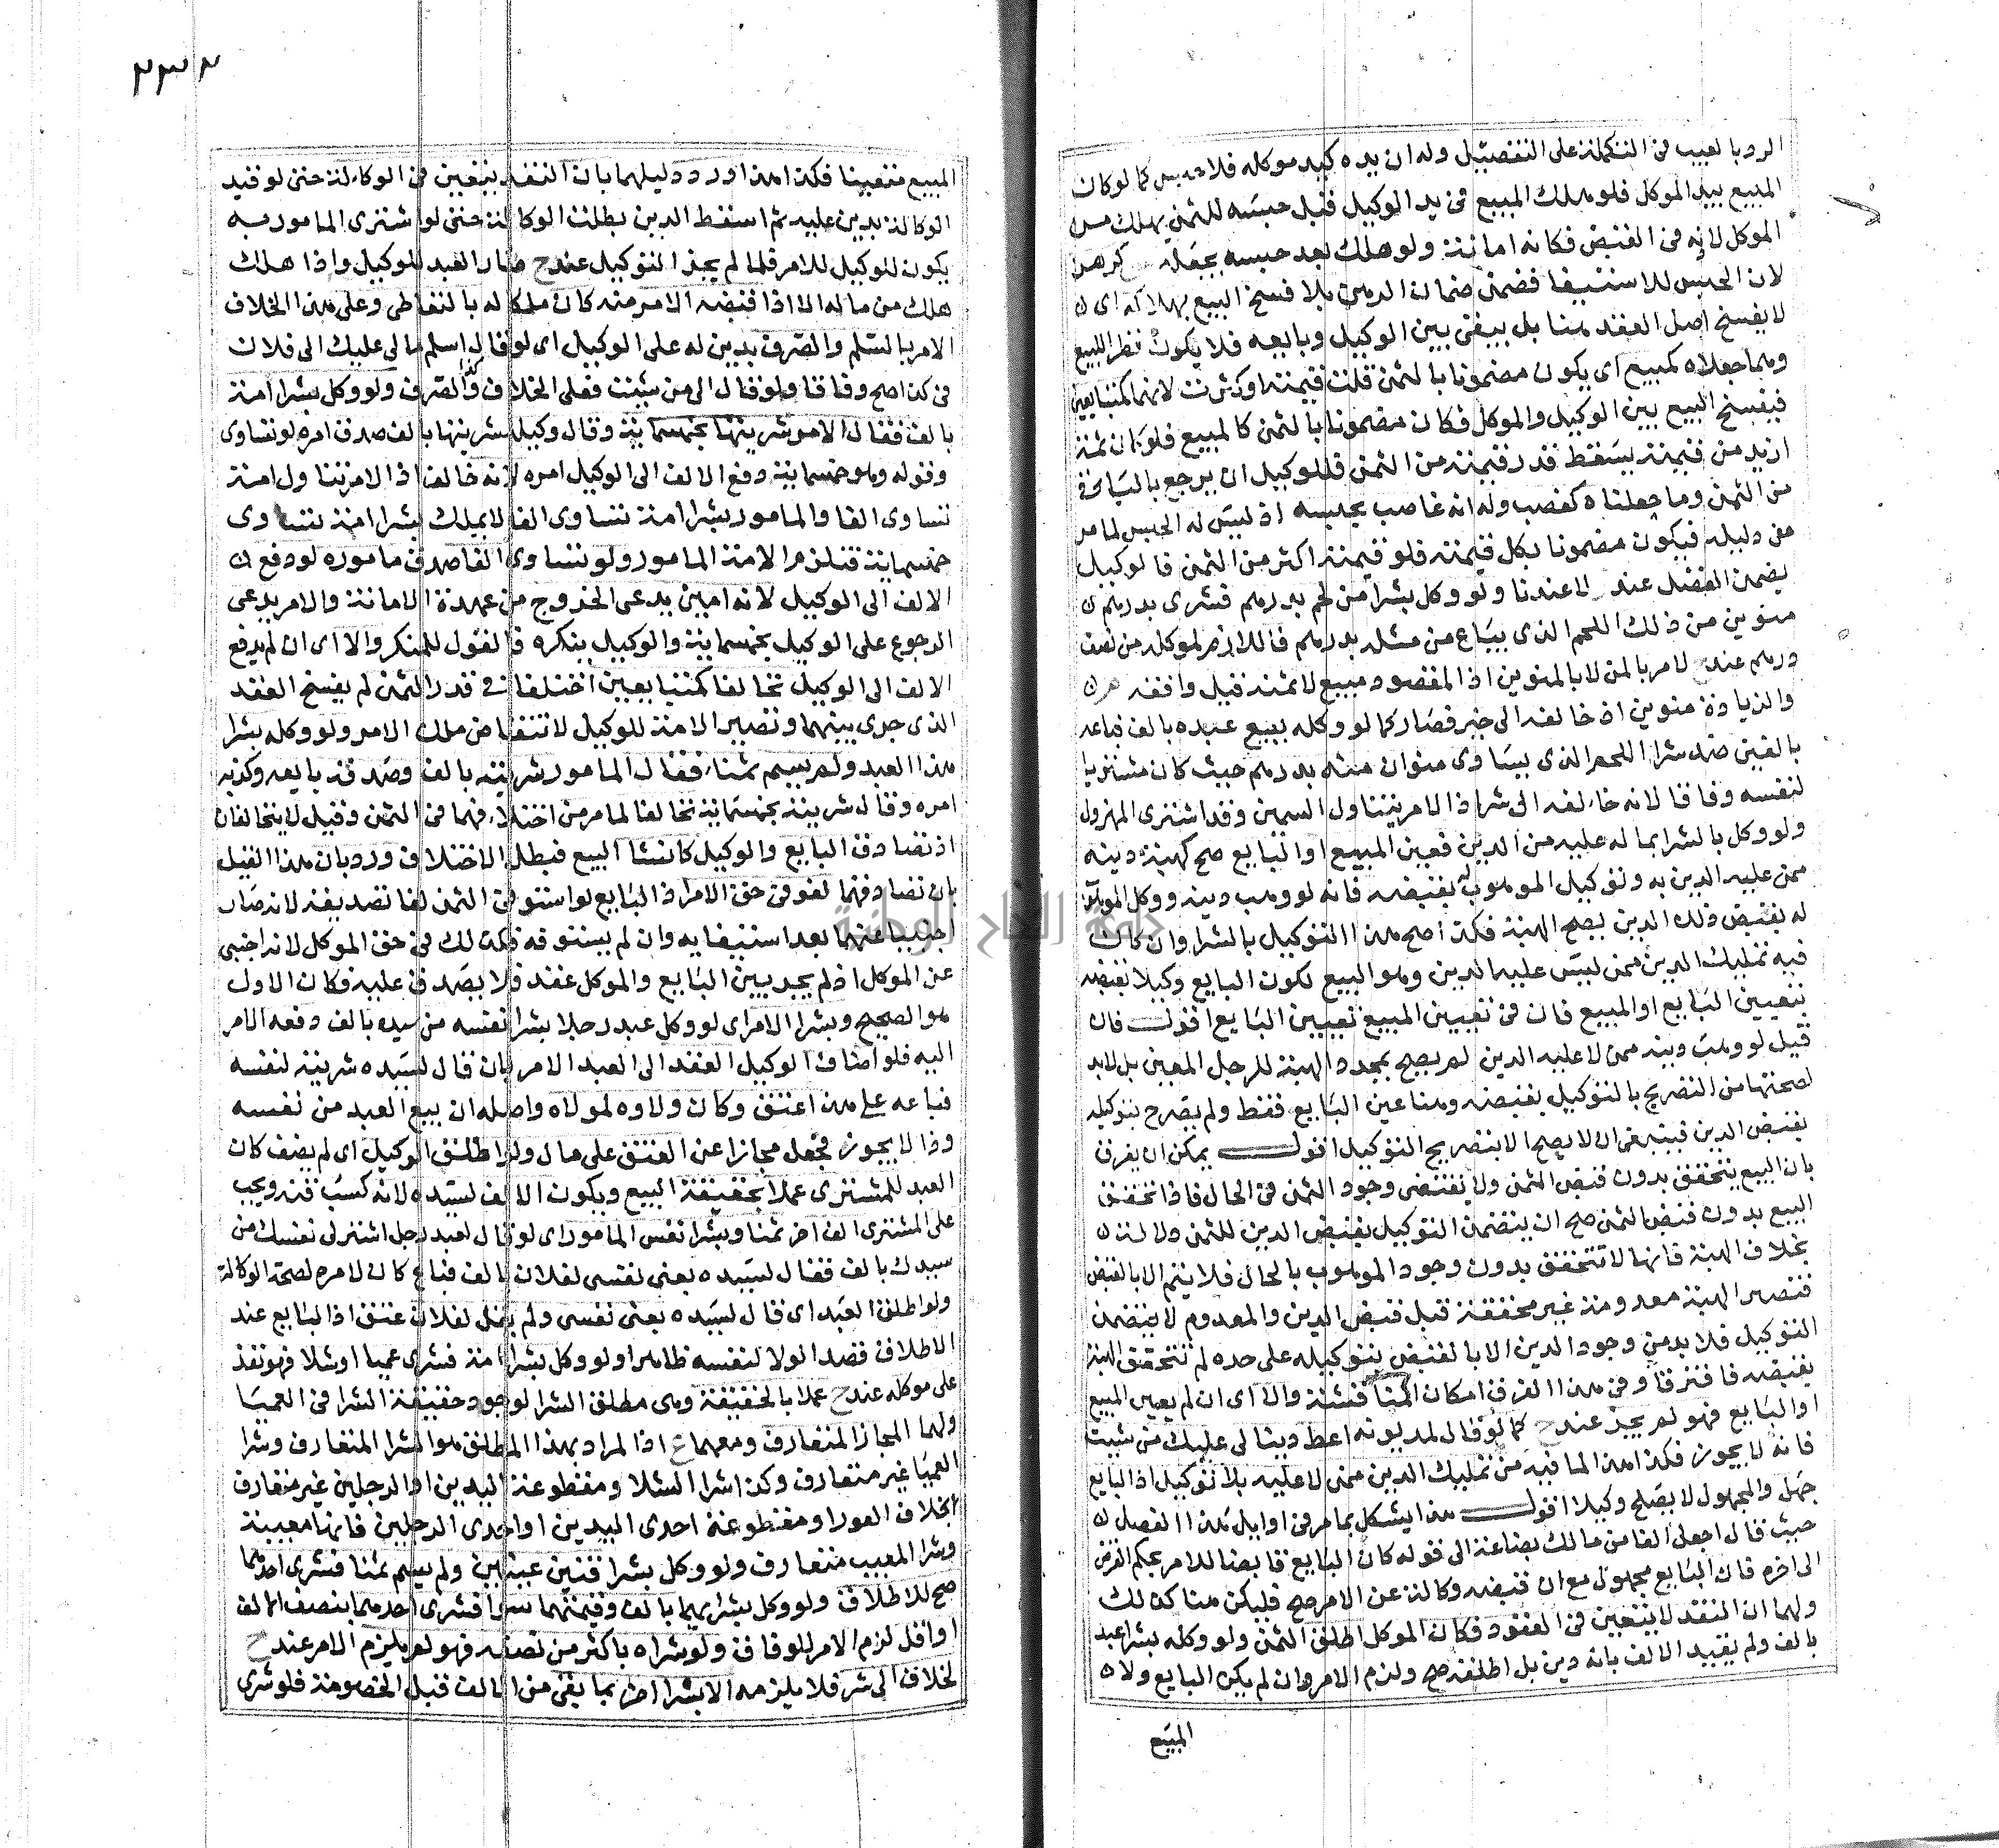 الرد بالعيب فى التكملة على التفصيل وله ان يده كيد موكله فلا حبس كما لو كان
المبيع بيد الموكل فلو هلك المبيع فى يد الوكيل قبل حبسه للثمن يهلك من
الموكل لانه فى القبض فكانه امانة ولو هلك بعد حبسه يجعله كرهن
لان الحبس للاستيفا فضمن ضمان الرهن بلا فسخ البيع بهلاكه اى
لا يفسخ اصل العقد هنا بل يبقى بين الوكيل وبايعه فلا يكون نظر المبيع
وهما جعلاه كمبيع اى يكون مضمونا بالثمن قلت قيمته او كثرت لانهما كمتبايعين
فيفسخ البيع بين الوكيل والموكل فكان مضمونا بالثمن كالمبيع فلو كان ثمنه
ازيد من قيمته يسقط قدر قيمته من الثمن فللوكيل ان يرجع بالباقى
من الثمن وما جعلناه كغصب وله انه غاصب بحبسه اذ ليس له الحبس لما مر
من دليله فيكون مضمونا بكل قيمته فلو قيمته اكثر من الثمن فالوكيل
يضمن الفضل عنده لا عندنا ولو وكل بشرا من لحم بدرهم فشرى بدرهم
منوين من ذلك اللحم الذى يباع من مثله بدرهم فاللازم لموكله من نصف
درهم عند ح لامر بالمن لا بالمنوين اذ المقصود مبيع لا ثمنه قيل وافقه
والزيادة منوين اذ خالفه الى خير فصار كما لو وكله ببيع عبده بالف فباعه
بالفين ضد شرا اللحم الذى يساوى منوان منه بدرهم حيث كان مشتريا
لنفسه وفاقا لانه خالفه الى شر اذ الامر يتناول السمين وقد اشترى المهزول
ولو وكل بالشرا بما له عليه من الدين فعين المبيع او البايع صح كهبة دينه
ممن عليه الدين به وتوكيل الموهوب له بقبضه فانه لو وهب دينه ووكل الموهوب
له بقبض ذلك الدين يصح الهبة فكذا صح هذا التوكيل بالشرا وان كان
فيه تمليك الدين ممن ليس عليه الدين وهو البيع لكون البايع وكيلا بقبضه
بتعيين البايع او المبيع فان فى تعيين المبيع تعيين البايع اقول فان
قيل لو وهب دينه ممن لا عليه الدين لم يصح بمجرد الهبة للرجل المعين بل لا بد
لصحتها من التصريح بالتوكيل بقبضه وهنا عين البايع فقط ولم يصرح بتوكيله
بقبض الدين فينبغى ان لا يصح الا بتصريح التوكيل اقول يمكن ان يفرق
بان البيع يتحقق بدون قبض الثمن ولا يقتضى وجود الثمن فى الحال فاذا تحقق
البيع بدون قبض الثمن صح ان يتضمن التوكيل بقبض الدين للثمن دلالة
بخلاف الهبة فانها لا تتحقق بدون وجود الموهوب بالحال فلا يتم الا بالقبض
فتصير الهبة معدومة غير محققة قبل قبض الدين والمعدوم لا يتضمن
التوكيل فلا بد من وجود الدين الا بالقبض بتوكيله على حده لم تتحقق الهبة
بقبضه فافترقا وفى هذا الفرق امكان المناقشة والا اى ان لم يعين المبيع
او البايع فهو لم يجز عند ح كما لو قال لمديونه اعط دينا لى عليك من شيت
فانه لا يجوز فكذا هذا لما فيه من تمليك الدين ممن لا عليه بلا توكيل اذ البايع
جهل والمجهول لا يصلح وكيلا اقول هذا يشكل بما مر فى اوايل هذا الفصل
حيث قال اجعلى الفا من مالك بضاعة الى قوله كان البايع قابضا للامر بحكم القرض
الى اخره فان البايع مجهول مع ان قبضه وكالة عن الامر صح فليكن هنا كذلك
ولهما ان النقد لا يتعين فى العقود فكان الموكل اطلق الثمن ولو وكله بشرا عبد
بالف ولم يقيد الالف بانه دين بل اطلقه صح ولزم الامر وان لم يكن البايع ولا
المبيع
٢٣٢
المبيع متعينا فكذا هذا ورد دليلهما بان النقد يتعين فى الوكالة حتى لو قيد
الوكالة بدين عليه ثم اسقط الدين بطلت الوكالة حتى لو اشترى المامور به
يكون للوكيل للامر فلما لم يجز التوكيل عند ح صار العبد للوكيل واذا هلك
هلك من ماله الا اذا قبضه الامر منه كان ملكا له بالتعاطى وعلى هذا الخلاف
الامر بالسلم والصرف بدين له على الوكيل اى لو قال اسلم مالى عليك الى فلان
فى كذا صح وفاقا ولو قال الى من شيت فعلى الخلاف وكذا الصرف ولو وكل بشرا امة
بالف فقال الامر شريتها بخمسماية وقال وكيله شريتها بالف صدق امره لو تساوى
وقوله وهو خمسماية ودفع الالف الى الوكيل امره لانه خالف اذ الامر يتناول امة
تساوى الفا والمامور بشرا امة تساوى الفا لا يملك بشرا امة تساوى
خمسماية فتلزم الامة المامور ولو تساوى الفا صدق ماموره لو دفع
الالف الى الوكيل لانه امين يدعى الخروج من عهدة الامانة والامر يدعى
الرجوع على الوكيل بخمسماية والوكيل ينكره فالقول للمنكر والا اى ان لم يدفع
الالف الى الوكيل تحالفا كمتبايعين اختلفا فى قدر الثمن ثم يفسخ العقد
الذى جرى بينهما وتصير الامة للوكيل لانتقاض ملك الامر ولو وكله بشرا
هذا العبد ولم يسم ثمنا فقال المامور شريته بالف وصدقه بايعه وكذبه
امره وقال شريته بخمسماية تحالفا لما مر من اختلافهما فى الثمن وقيل لا يتحالفان
اذ تصادق البايع والوكيل كانشا البيع فبطل الاختلاف ورد بان هذا القيل
بان تصادقهما لغو فى حق الامر اذ البايع لو استوفى الثمن لغا تصديقه لانه صار
اجنبيا عنهما بعد استيفايه وان لم يستوفه فكذلك فى حق الموكل لانه اجنبى
عن الموكل اذ لم يجر بين البايع والموكل عقد فلا يصدق عليه فكان الاول
هو الصحيح وبشرا الامر اى لو وكل عبد رجلا بشرا نفسه من سيده بالف دفعه الامر
اليه فلو اضاف الوكيل العقد الى العبد الامر بان قال لسيده شريته لنفسه
فباعه على هذا عتق وكان ولاوه لمولاه واصله ان بيع العبد من نفسه
وذا لا يجوز فجعل مجازا عن العتق على مال ولو اطلق الوكيل اى لم يضف كان
العبد للمشترى عملا بحقيقة البيع ويكون الالف لسيده لانه كسب قنه ويجب
على المشترى الف اخر ثمنا وبشرا نفس المامور اى لو قال لعبد رجل اشتر لى نفسك من
سيدك بالف فقال لسيده بعنى نفسى لفلان بالف فباع كان لامره لصحة الوكالة
ولو اطلق العبد اى قال لسيده بعنى نفسى ولم يقل لفلان عتق اذ البايع عند
الاطلاق قصد الولا لنفسه ظاهرا ولو وكل بشرا امة فشرى عميا او شلا فهو نفذ
على موكله عند ح عملا بالحقيقة وهى مطلق الشرا لوجود حقيقة الشرا فى العميا
ولهما المجاز المتعارف ومعهما ع اذ المراد بهذا المطلق هو الشرا المتعارف وشرا
العميا غير متعارف وكذا شرا الشلا ومقطوعة اليدين او الرجلين غير متعارف
بخلاف العورا ومقطوعة احدى اليدين او احدى الرجلين فانها معيبة
وشرا المعيب متعارف ولو وكل بشرا قنين عينهما ولم يسم ثمنا فشرى احدهما
صح للاطلاق ولو وكل بشرايهما بالف وقيمتهما سوا فشرى احدهما بنصف الالف
او اقل لزم الامر للوفاق ولو شراه باكثر من نصفه فهو لم يلزم الامر عند ح
لخلاف الى شر فلا يلزمه الا بشرا اخر بما بقى من الالف قبل الخصومة فلو شرى
جامعة النجاح الوطنية